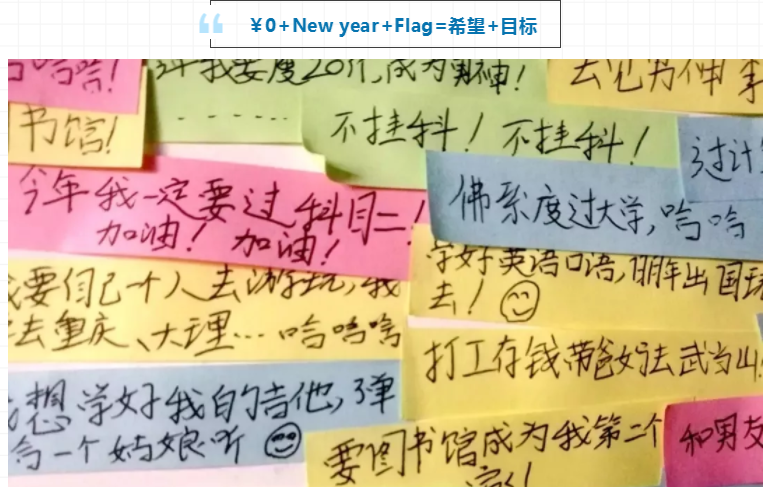 ¥0+New year+Flag=希望+目标
哈哈!
年我要瘦20斤,成为男神!
去见男神
书馆!
不挂科! 不挂科!
过计
今年我一定要过科目二!
加油! 加油!
佛系度过大学,哈哈
学好英语口语,明年出国玩
去!
要自己一个人去游玩,我
去重庆、大理…哈哈哈
打工存钱带爸妈去武当山
想学好我的吉他,弹
给一个姑娘听
要图书馆成为我第二个
家!
和男友